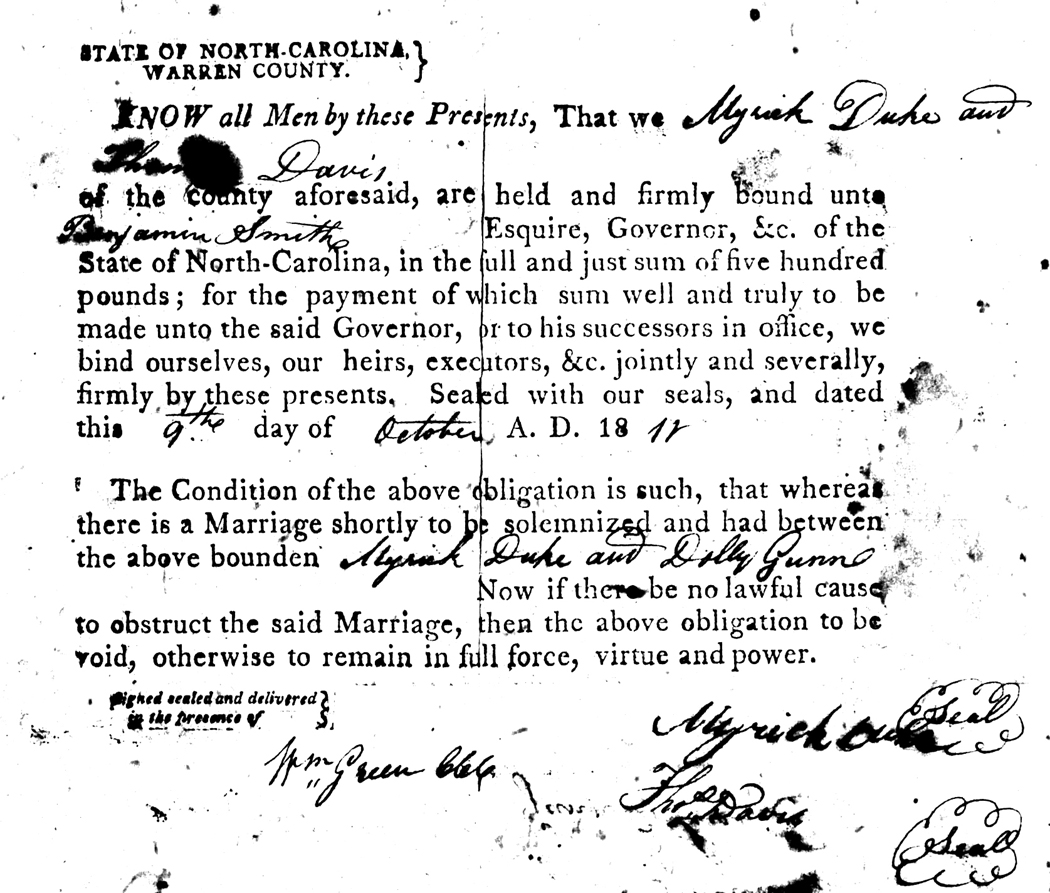 STATE OF NORTH-CAROLINA,
WARREN COUNTY.
KNOW all Men by these Presents, That we Myrick Duke and
Davis
of the county aforesaid, are held and firmly bound unto
Benjamin Smith Esquire, Governor, &c. of the
State of North-Carolina, in the full and just sum of five hundred
pounds; for the payment of which sum well and truly to be
made unto the said Governor, or to his successors in office, we
bind ourselves, our heirs, executors, &c. jointly and severally,
firmly by these presents. Sealed with our seals, and dated
this 9.the day of October A. D. 18
The Condition of the above obligation is such, that whereas
there is a Marriage shortly to be solemnized and had between
the above bounden Myrick Duke and Dolly Gunn
Now if there be no lawful cause
to obstruct the said Marriage, then the above obligation to be
void, otherwise to remain in full force, virtue and power.
Signed sealed and delivered
in the presence of
Myrick Duke Seal
Wm Green
Thos Davis
Seal